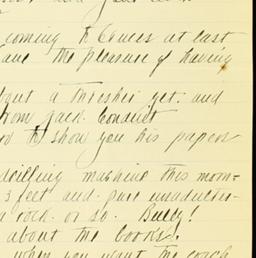 coming to Cruces at last
the pleasure of having
about a thresher yet. and
from Jack. Conduct
to show you his papers
drilling machine this morn=
3 feet and pure unadulter-
a rock. or so. Bully!
about the books!
when you want the coach